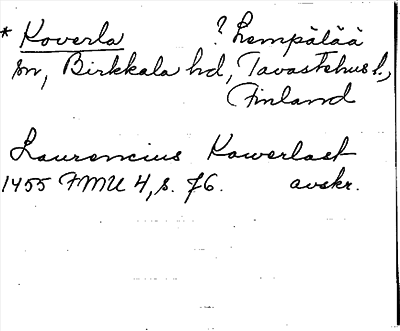 * Koverla ? Lempälää
sn, Birkkala hd, Tavastehus l.,
Finland
Laurencius Kawerlast
1455 FMU 4, s. 76. avskr.